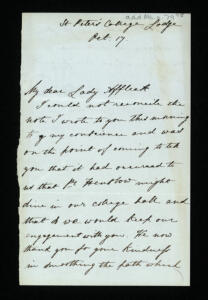 St Peter's College Lodge
Oct. 17
My dear Lady Affleck
I could not reconcile the
note I wrote to you this morning
to my conscience and was
on the point of coming to tell
you that it had occurred to
us that Pr Henslow might
dine in our college hall and
that so we would keep our
engagement with you. We now
thank you for your kindness
in smoothing the path which